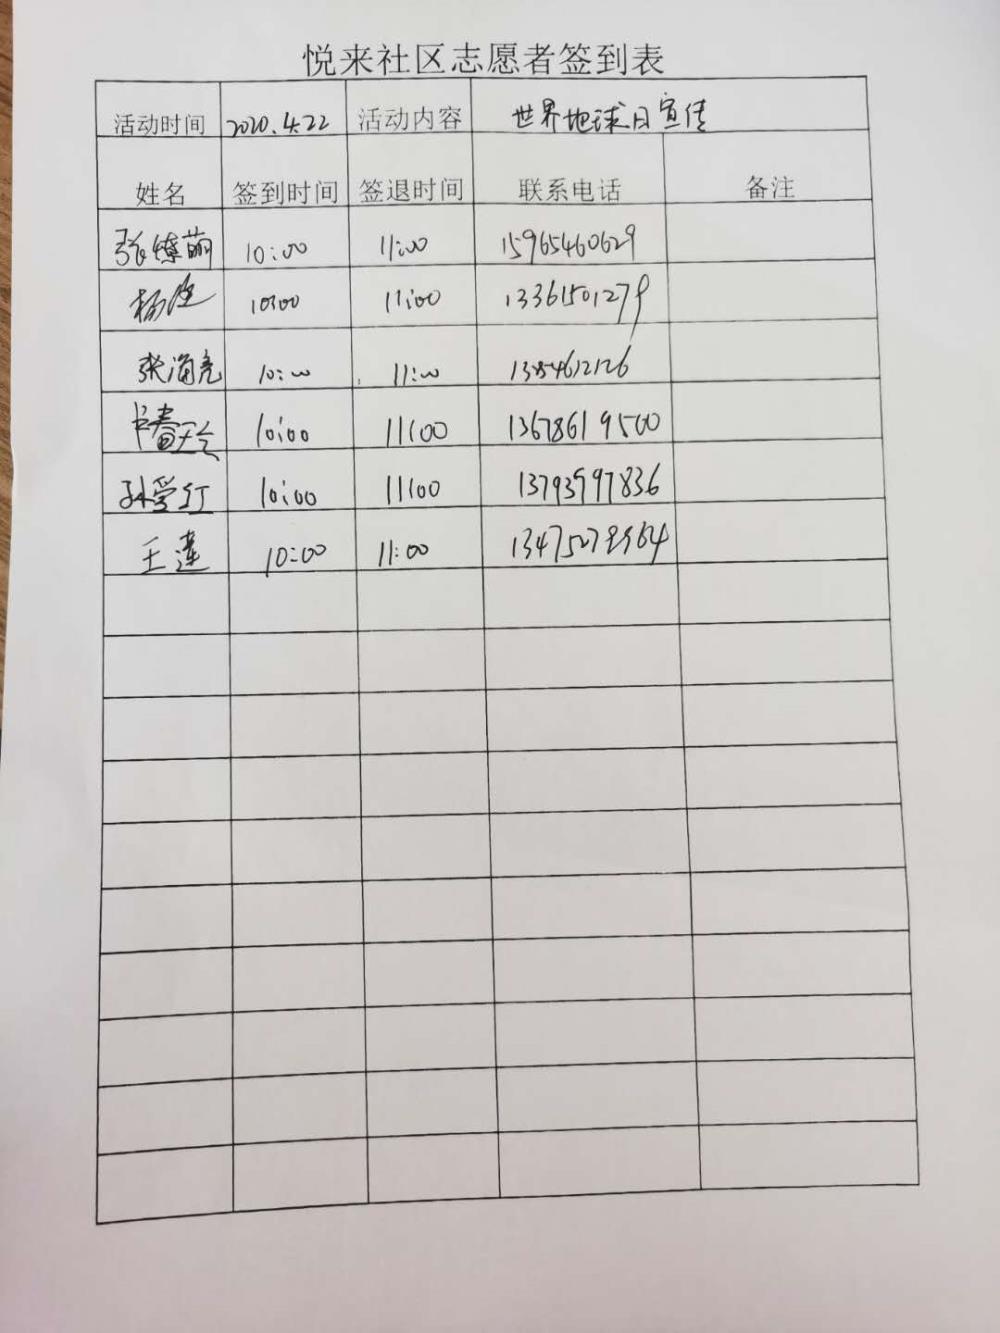 悦来社区志愿者签到表
活动时间 2020.4.22 活动内容 世界地球日宣传
姓名 签到时间 签退时间 联系电话 备注
张燎萌 10:00 11:00 15965460629
杨 10:00 11:00 13361501279
张海亮 10:00 11:00
10:00 11:00 13678619500
孙爱红 10:00 11:00 13793997836
王莲 10:00 11:00